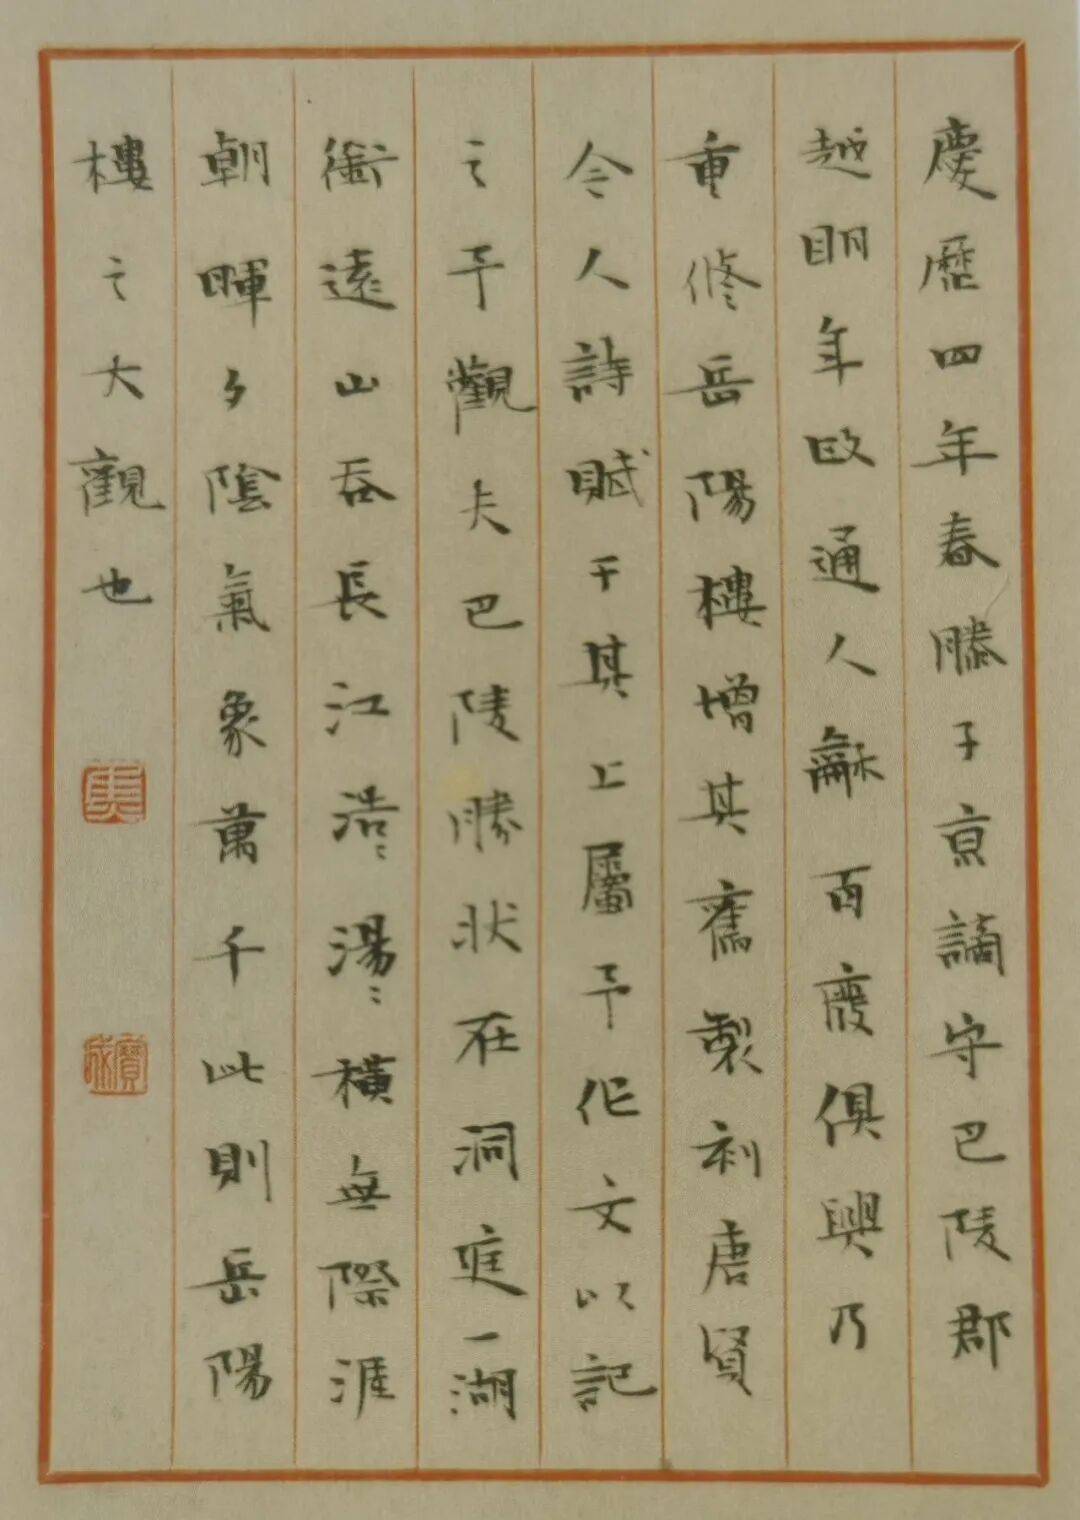 慶歷四年春滕子京謫守巴陵郡
越明年政通人龢百廢俱興乃
重修岳陽樓增其舊製刻唐賢
今人詩賦于其上屬予作文以記
之予觀夫巴陵勝狀在洞庭一湖
銜遠山吞長江浩〻湯〻橫無際涯
朝暉夕陰氣象萬千此則岳陽
樓之大觀也